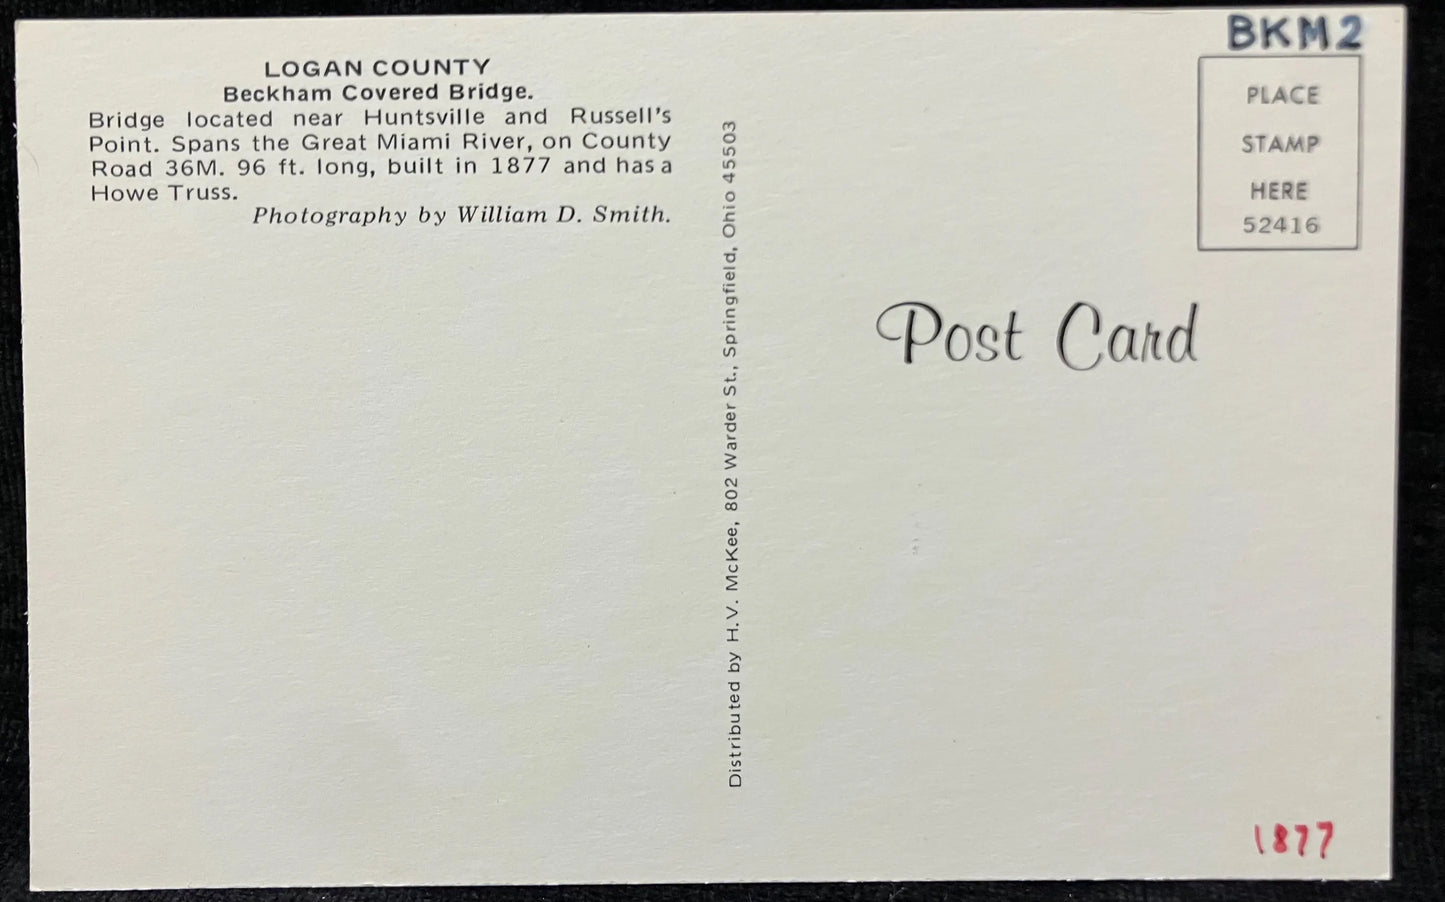 LOGAN COUNTY
Beckham Covered Bridge.
Bridge located near Huntsville and Russell's
Point. Spans the Great Miami River, on County
Road 36M. 96 ft. long, built in 1877 and has a
Howe Truss.
Photography by William D. Smith.
Distributed by H.V. McKee, 802 Warder St., Springfield, Ohio 45503
BKM2
PLACE
STAMP
HERE
52416
Post Card
1877